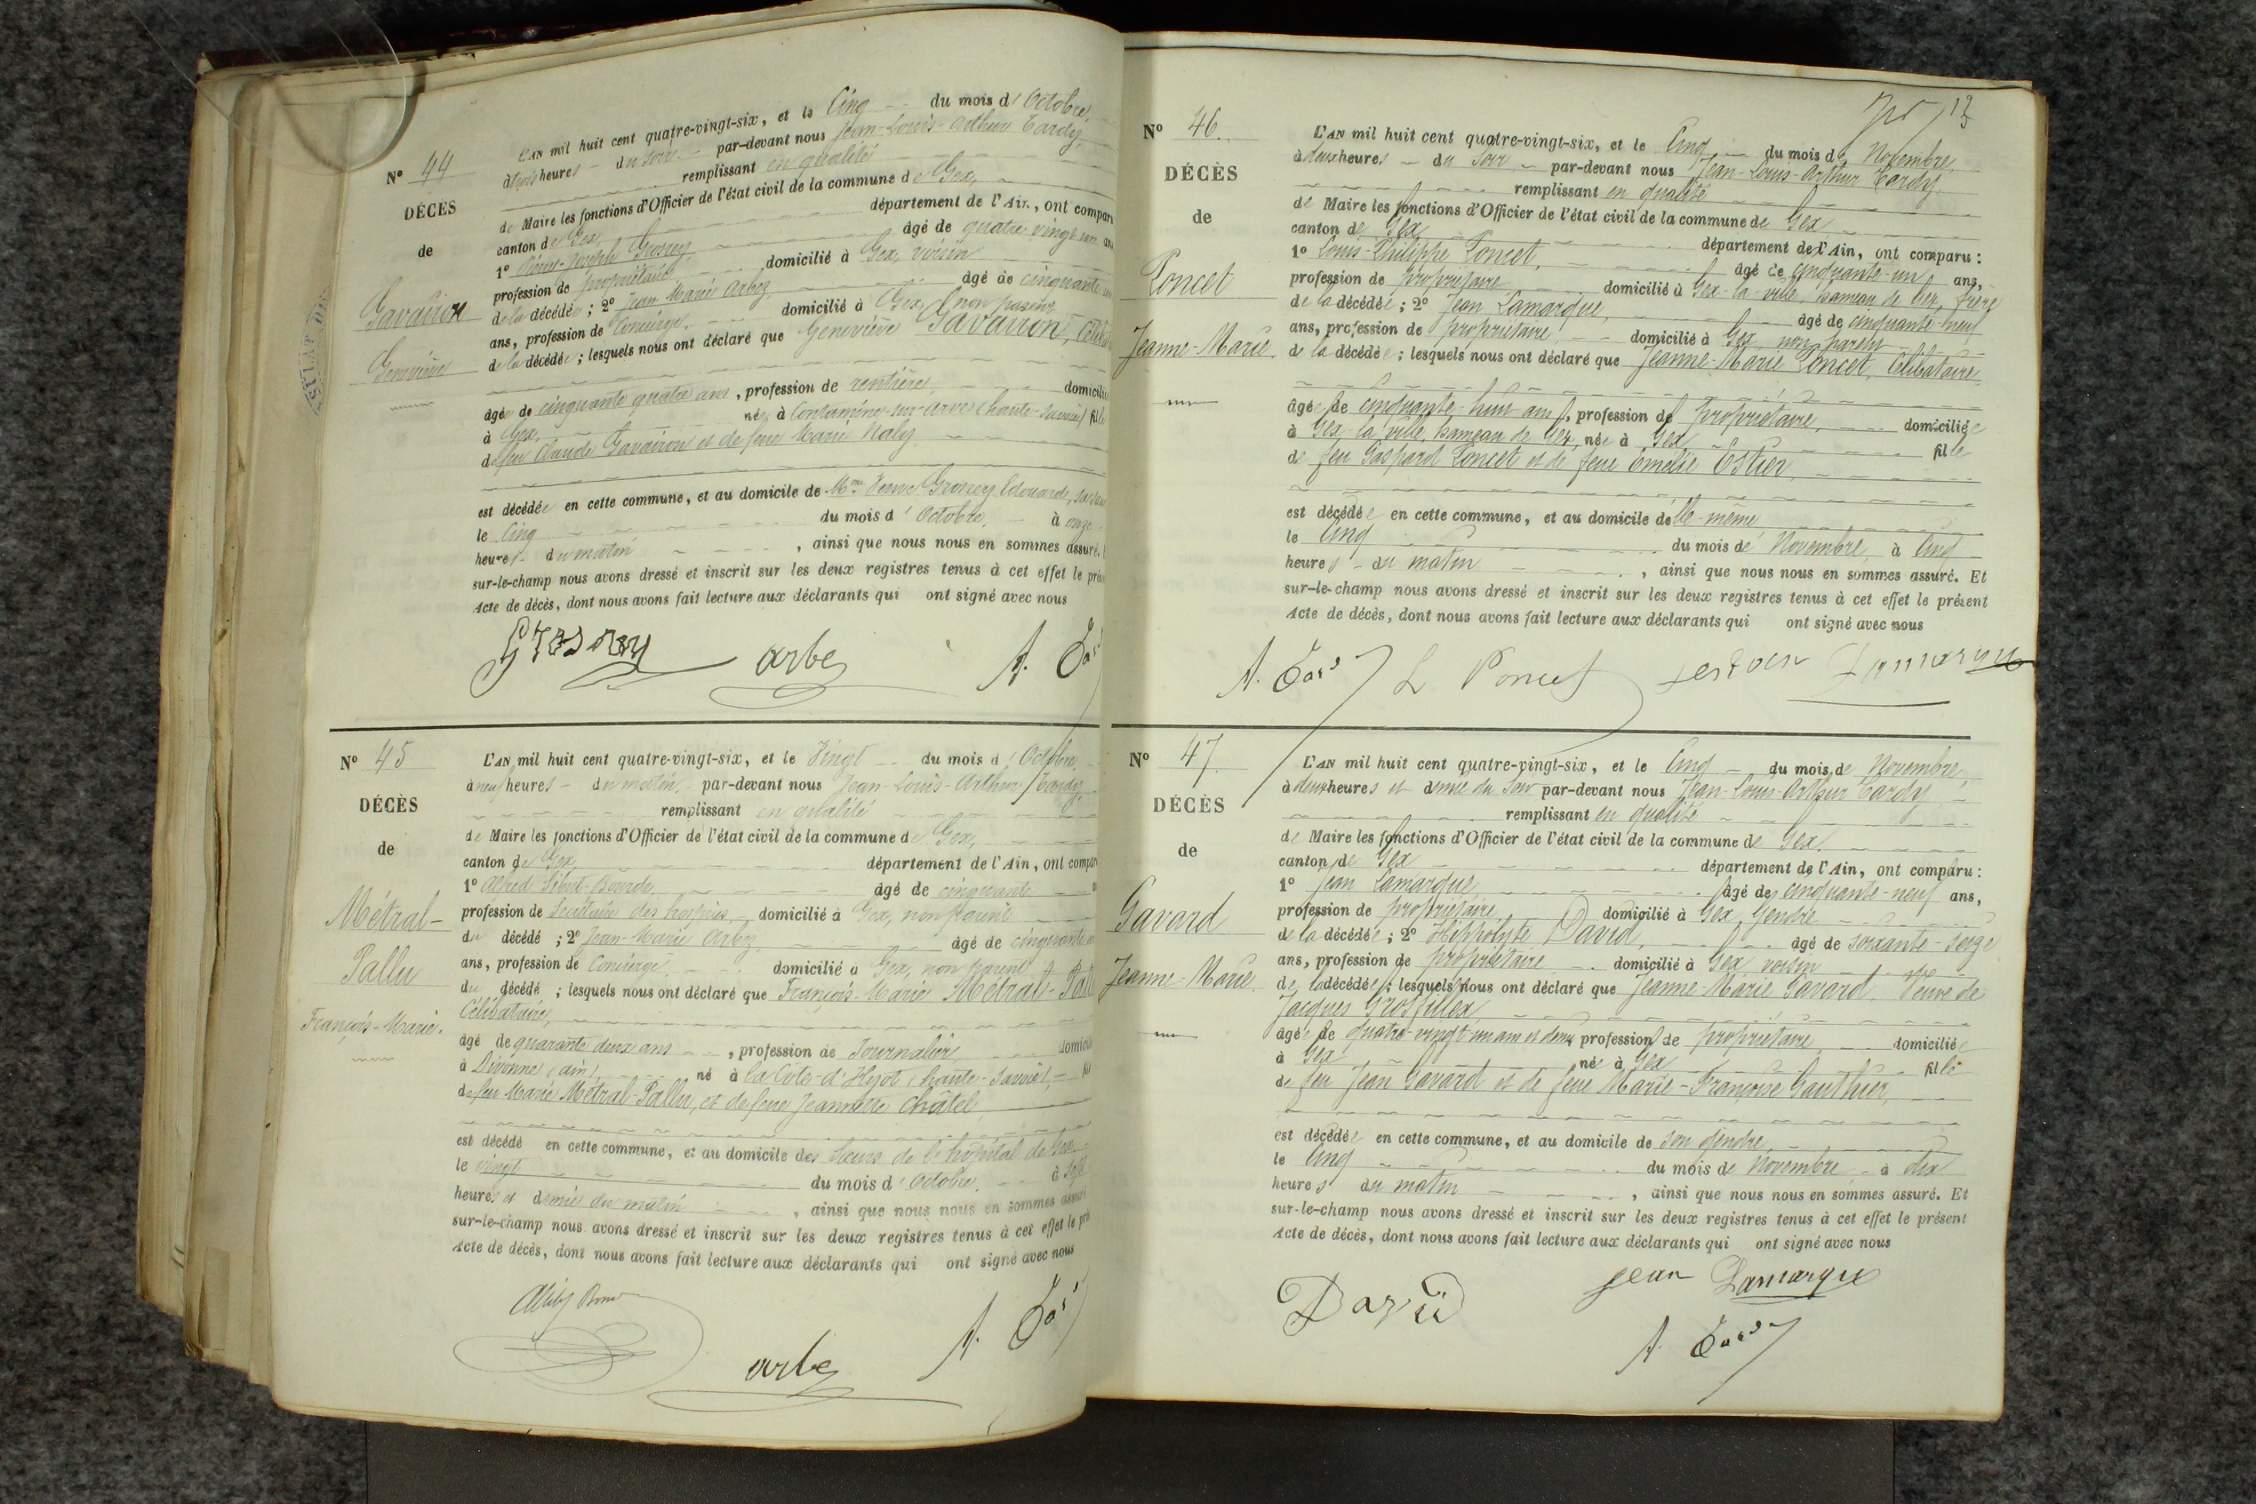 N° 44
DÉCÈS
de
Gavairon
Geneviève
L'AN mil huit cent quatre-vingt-six, et le Cinq du mois d'Octobre,
à trois heures du soir par-devant nous Jean-Louis-Arthur Tardy,
remplissant en qualité
de Maire les fonctions d'Officier de l'état civil de la commune de Gex,
canton de Gex, département de l'Ain, ont compar
1° Pierre-Joseph Grosrey âgé de quatre vingt un ans
profession de propriétaire domicilié à Gex, voisin
de la décédée ; 2° Jean Marie Arbez âgé de cinquante
ans, profession de Concierge, domicilié à Gex, non parent
de la décédée ; lesquels nous ont déclaré que Geneviève Gavairon,
âgée de cinquante quatre ans, profession de rentière, domicili
à Gex, née à Contamine-sur-Arve (haute-Savoie) fille
de feu Claude Gavairon et de feue Marie Naly
est décédée en cette commune, et au domicile de Mme Grosrey Edouarde,
le Cinq du mois d'Octobre, à onze
heures du matin, ainsi que nous nous en sommes assuré.
sur-le-champ nous avons dressé et inscrit sur les deux registres tenus à cet effet le prés
Acte de décès, dont nous avons fait lecture aux déclarants qui ont signé avec nous
Grosrey arbez A. Tar
N° 45
DÉCÈS
de
Métral-
Pallu
François-Marie.
L'AN mil huit cent quatre-vingt-six, et le Vingt du mois d'Octobre,
à neuf heures du matin, par-devant nous Jean-Louis-Arthur Tardy,
remplissant en qualité
de Maire les fonctions d'Officier de l'état civil de la commune de Gex,
canton de Gex, département de l'Ain, ont compar
1° Alfred Sibut-Bourde, âgé de cinquante
profession de Secrétaire des hospices, domicilié à Gex, non parent
du décédé ; 2° Jean-Marie Arbez âgé de cinquante
ans, profession de Concierge domicilié à Gex, non parent
du décédé ; lesquels nous ont déclaré que François-Marie Métral-Pall
Célibataire,
âgé de quarante deux ans, profession de Journalier, domicili
à Divonne (ain), né à la Côte-d'Hyot (haute-Savoie), fil
de feu Marie Métral-Pallu, et de feue Jeannette Châtel
est décédé en cette commune, et au domicile des Sœurs de l'hôpital de Gex
le vingt du mois d'Octobre, à sept
heures et demie du matin, ainsi que nous nous en sommes assuré
sur-le-champ nous avons dressé et inscrit sur les deux registres tenus à cet effet le pré
Acte de décès, dont nous avons fait lecture aux déclarants qui ont signé avec nous
arbez A. Tar
13
N° 46.
DÉCÈS
de
Poncet
Jeanne-Marie.
L'AN mil huit cent quatre-vingt-six, et le Cinq du mois de Novembre,
à deux heures du Soir par-devant nous Jean-Louis-Arthur Tardy
remplissant en qualité
de Maire les fonctions d'Officier de l'état civil de la commune de Gex
canton de Gex département de l'Ain, ont comparu :
1° Louis-Philippe Poncet, âgé de cinquante-un ans,
profession de propriétaire domicilié à Gex-la-ville, hameau de Gex, frère
de la décédée ; 2° Jean Lamarque, âgé de cinquante-neuf
ans, profession de propriétaire, domicilié à Gex non parent
de la décédée ; lesquels nous ont déclaré que Jeanne-Marie Poncet, Célibataire
âgée de cinquante-huit ans, profession de propriétaire, domiciliée
à Gex-la-ville, hameau de Gex, née à Gex fille
de feu Gaspard Poncet et de feue Emélie Estier,
est décédée en cette commune, et au domicile d'elle-même
le Cinq du mois de Novembre, à Cinq
heures du matin, ainsi que nous nous en sommes assuré. Et
sur-le-champ nous avons dressé et inscrit sur les deux registres tenus à cet effet le présent
Acte de décès, dont nous avons fait lecture aux déclarants qui ont signé avec nous
A. Tardy L Poncet Lamarque
N° 47.
DÉCÈS
de
Gavard
Jeanne-Marie.
L'AN mil huit cent quatre-vingt-six, et le Cinq du mois de Novembre,
à deux heures et demie du Soir par-devant nous Jean-Louis-Arthur Tardy
remplissant en qualité
de Maire les fonctions d'Officier de l'état civil de la commune de Gex.
canton de Gex département de l'Ain, ont comparu :
1° Jean Lamarque âgé de cinquante-neuf ans,
profession de propriétaire, domicilié à Gex, Gendre
de la décédée ; 2° Hippolyte David, âgé de soixante-seize
ans, profession de propriétaire domicilié à Gex, voisin
de la décédée ; lesquels nous ont déclaré que Jeanne-Marie Gavard, Veuve de
Jacques Grosfillex,
âgée de quatre-vingt-un ans et demi profession de propriétaire, domiciliée
à Gex née à Gex fille
de feu Jean Gavard et de feue Marie-Françoise Gauthier,
est décédée en cette commune, et au domicile de son gendre
le Cinq du mois de Novembre à dix
heures du matin, ainsi que nous nous en sommes assuré. Et
sur-le-champ nous avons dressé et inscrit sur les deux registres tenus à cet effet le présent
Acte de décès, dont nous avons fait lecture aux déclarants qui ont signé avec nous
jean Lamarque
David
A. Tardy